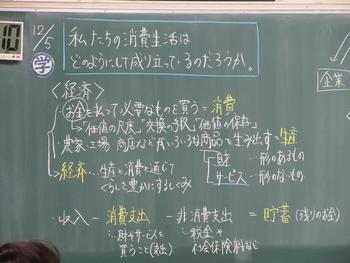 10
12/5
私たちの消費生活は
どのようにして成り立ってるのだろうか。
学
企業
<経済>
お金を払って必要なものを買う=消費
→「価値の尺度」「交換の手段」「価値の保存」
・農家、工場、商店などが、いろいろな商品を生み出す=生産
財…形のあるもの
サービス…形のないもの
経済…生産と消費を通じて
くらしを豊かにするしくみ
・収入-消費支出-非消費支出=貯蓄(残りのお金)
∴財やサービスを
買うこと(支出)
∴税金や
社会保険料など